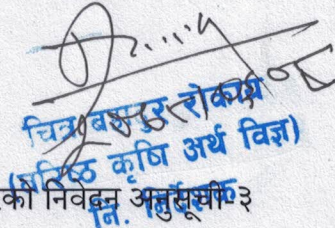 चित्र बहादुर रोकाय
(वरिष्ठ कृषि अर्थ विज्ञ)
नि. निर्देशक
को निवेदन अनुसूची-३